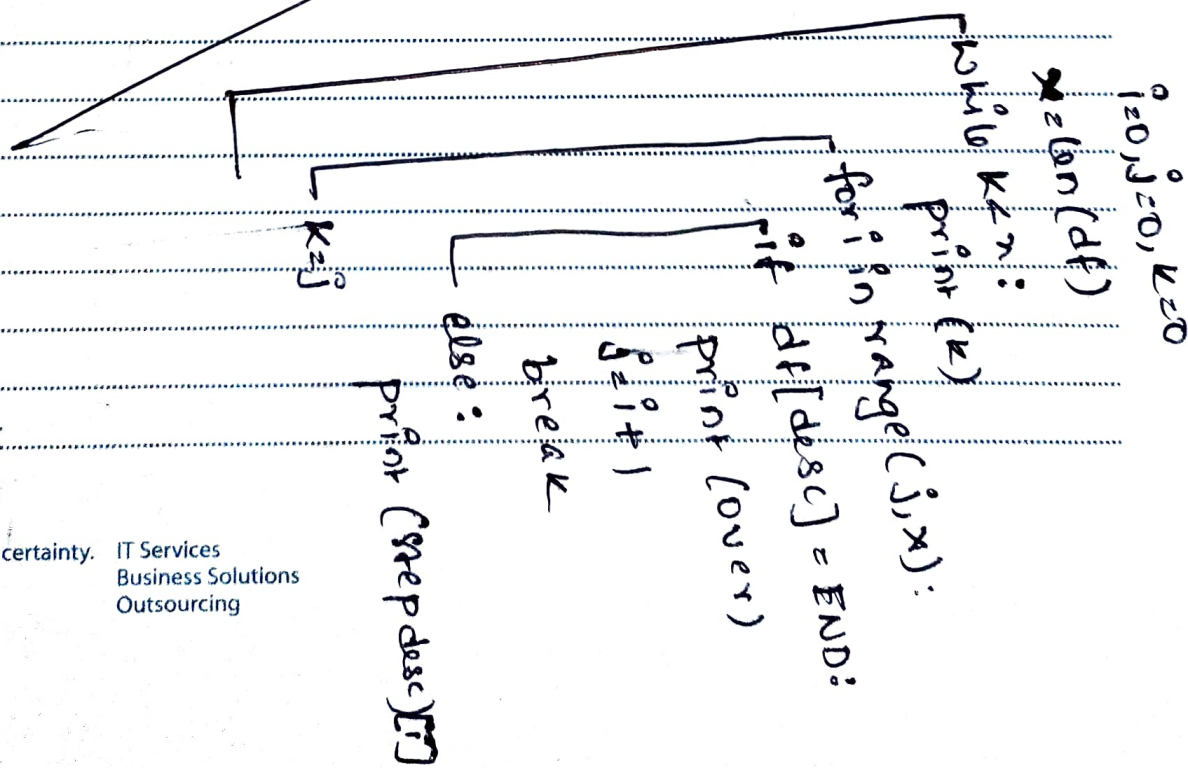 i=0, j=0, k=0
x=len(df)
while k<x:
print (k)
for i in range(j,x):
if df[desc] = END:
print (over)
j=i+1
break
else:
print (stepdesc)[i]
k=j
certainty. IT Services
Business Solutions
Outsourcing